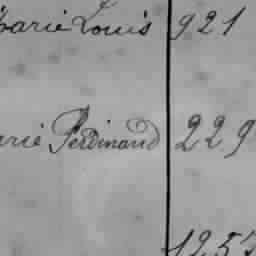 Marie Louis 921
arie Ferdinand 229
1253